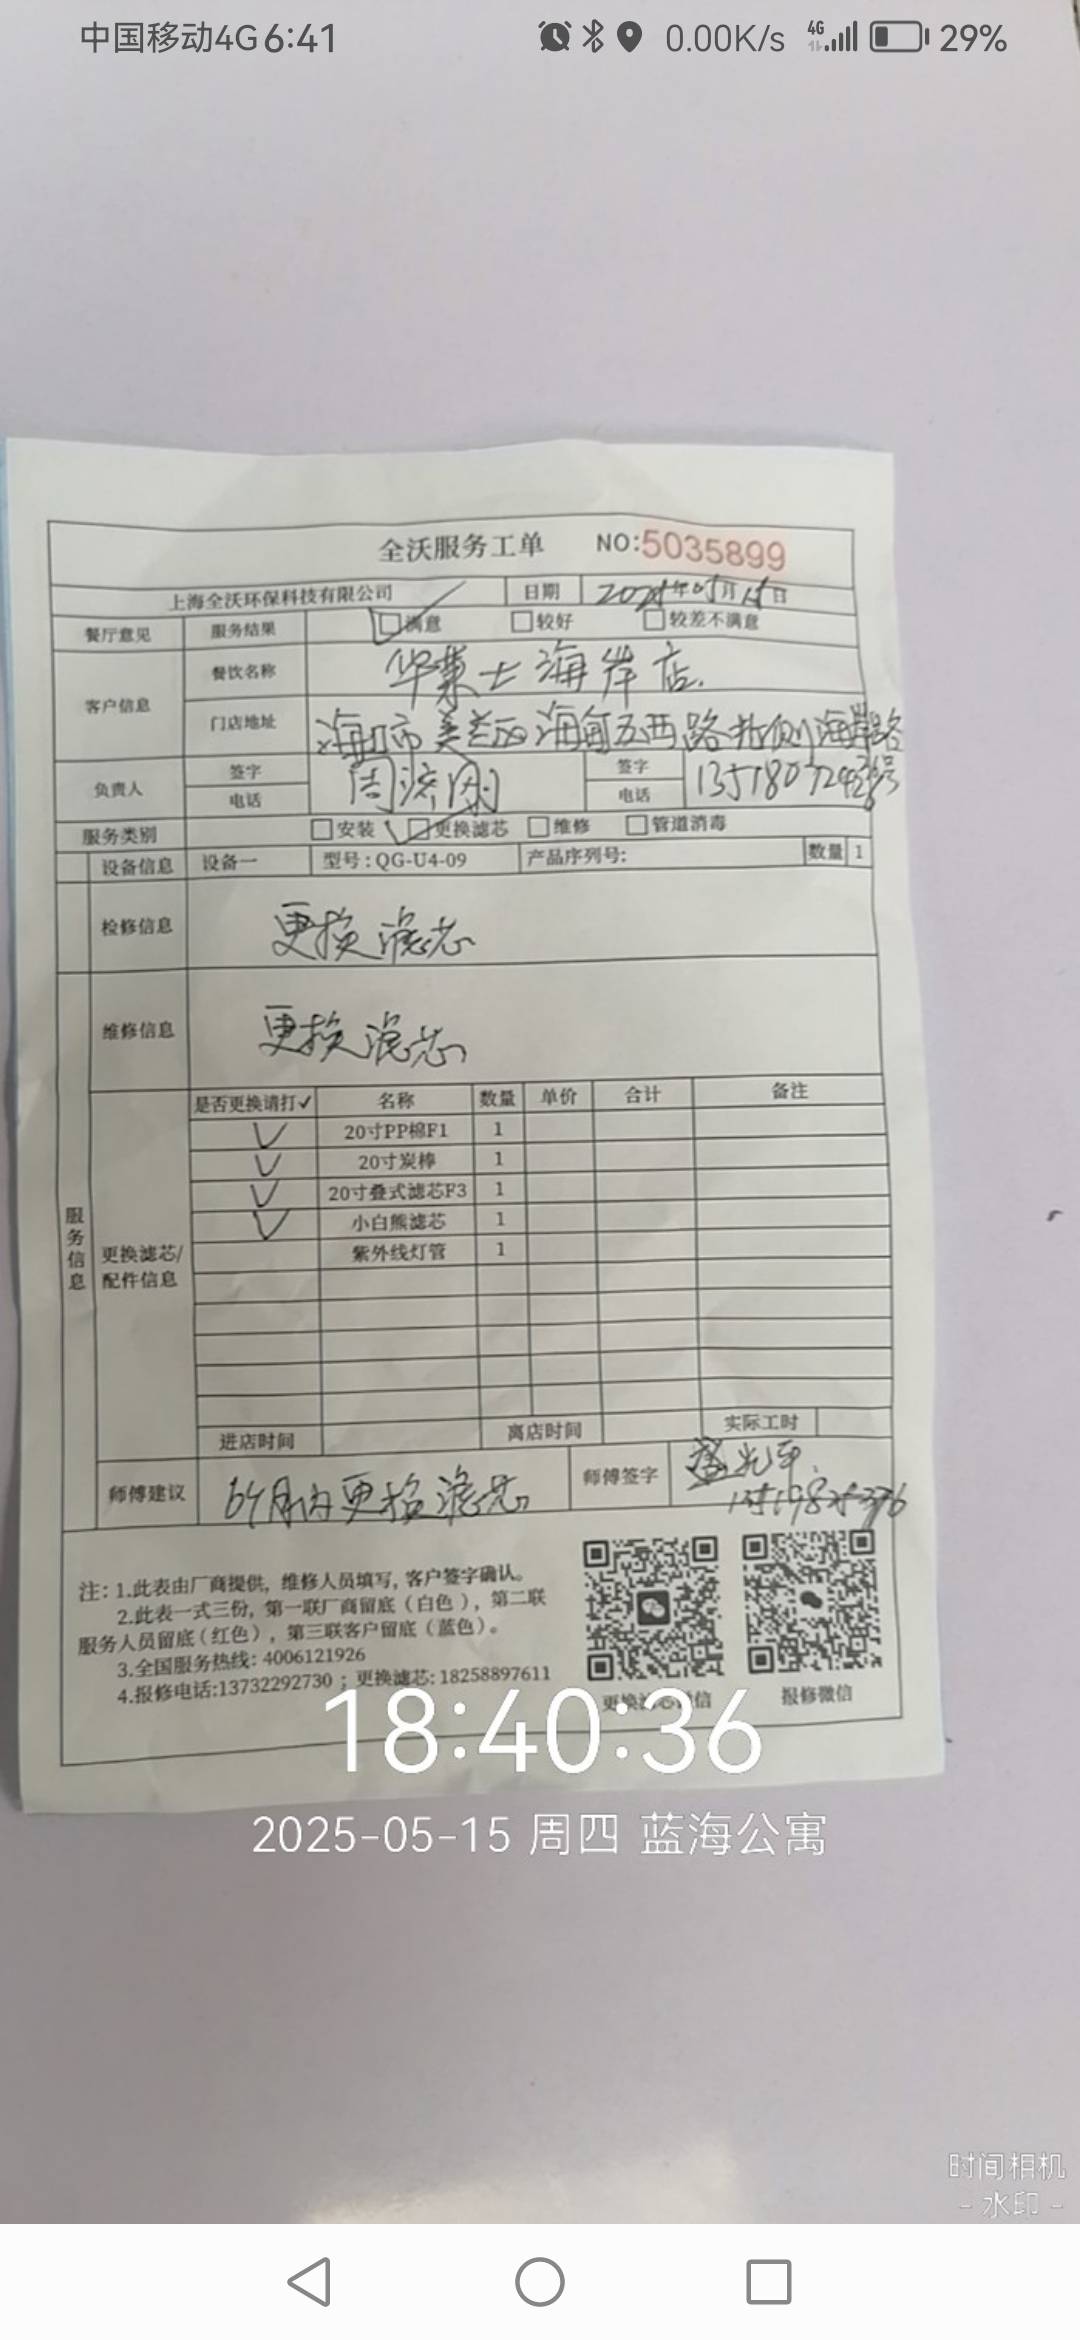 中国移动4G 6:41 0.00K/s 4G 29%
全沃服务工单 NO:5035899
上海全沃环保科技有限公司 日期 年05月15日
餐厅意见 服务结果 满意 较好 较差不满意
客户信息 餐饮名称 华莱士海岸店.
门店地址 海口市美兰区海甸五西路北侧海岸路
负责人 签字 周 签字
电话 电话
服务类别 安装 更换滤芯 维修 管道消毒
设备信息 设备一 型号:QG-U4-09 产品序列号: 数量 1
检修信息 更换滤芯
维修信息 更换滤芯
服务信息 更换滤芯/配件信息
是否更换请打✓ 名称 数量 单价 合计 备注
✓ 20寸PP棉F1 1
✓ 20寸炭棒 1
✓ 20寸叠式滤芯F3 1
✓ 小白熊滤芯 1
紫外线灯管 1
进店时间 离店时间 实际工时
师傅建议 6个月内更换滤芯 师傅签字
注: 1.此表由厂商提供, 维修人员填写, 客户签字确认。
2.此表一式三份, 第一联厂商留底(白色), 第二联
服务人员留底(红色), 第三联客户留底(蓝色)。
3.全国服务热线: 4006121926
4.报修电话:13732292730 ; 更换滤芯: 18258897611
更换滤芯微信 报修微信
18:40:36
2025-05-15 周四 蓝海公寓
时间相机
- 水印 -